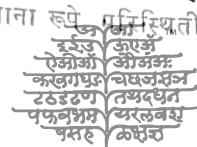 ाना रूपे परिस्थिती
अ आ
इ ई उ ऊ
ऐ ओ औ अं अः
क ख ग घ ङ च छ ज झ ञ
ट ठ ड ढ ण त थ द ध न
प फ ब भ म य र ल व श
ष स ह ळ क्ष ज्ञ